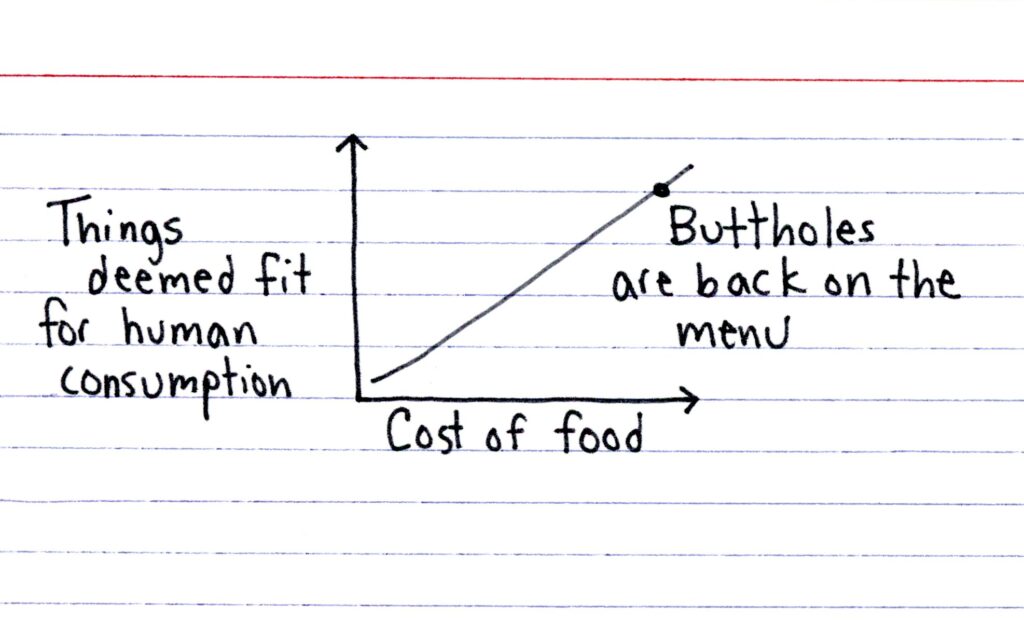 Things
deemed fit
for human
consumption
Buttholes
are back on the
menu
Cost of food